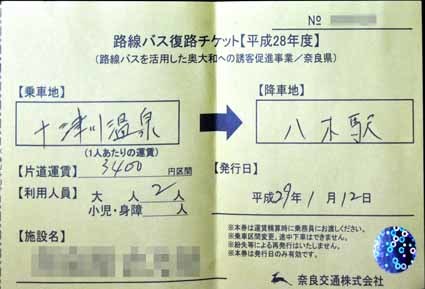 No
路線バス復路チケット【平成28年度】
(路線バスを活用した奥大和への誘客促進事業/奈良県)
【乗車地】
【降車地】
十津川温泉
八木駅
(1人あたりの運賃)
【片道運賃】 3400 円区間
【発行日】
【利用人員】 大 人 2 人
小児・身障 人
平成29年 1月 12日
【施設名】
※本券は運賃精算時に乗務員にお渡しください。
※乗車区間変更、途中下車はできません。
※紛失等による再発行はいたしません。
※本券は発行日のみ有効です。
奈良交通株式会社